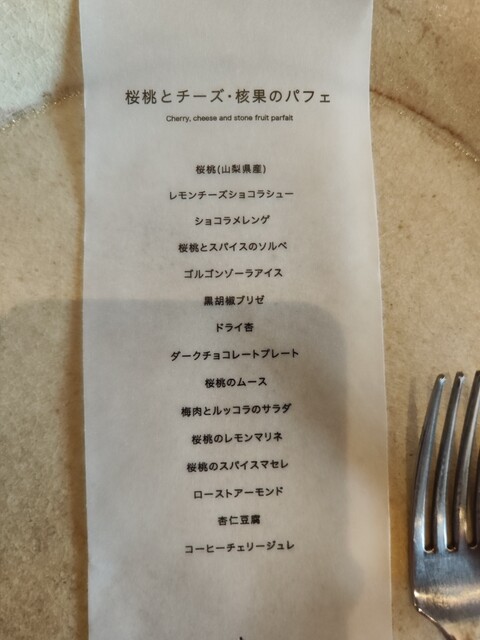 桜桃とチーズ・核果のパフェ
Cherry, cheese and stone fruit parfait
桜桃(山梨県産)
レモンチーズショコラシュー
ショコラメレンゲ
桜桃とスパイスのソルベ
ゴルゴンゾーラアイス
黒胡椒ブリゼ
ドライ杏
ダークチョコレートプレート
桜桃のムース
梅肉とルッコラのサラダ
桜桃のレモンマリネ
桜桃のスパイスマセレ
ローストアーモンド
杏仁豆腐
コーヒーチェリージュレ